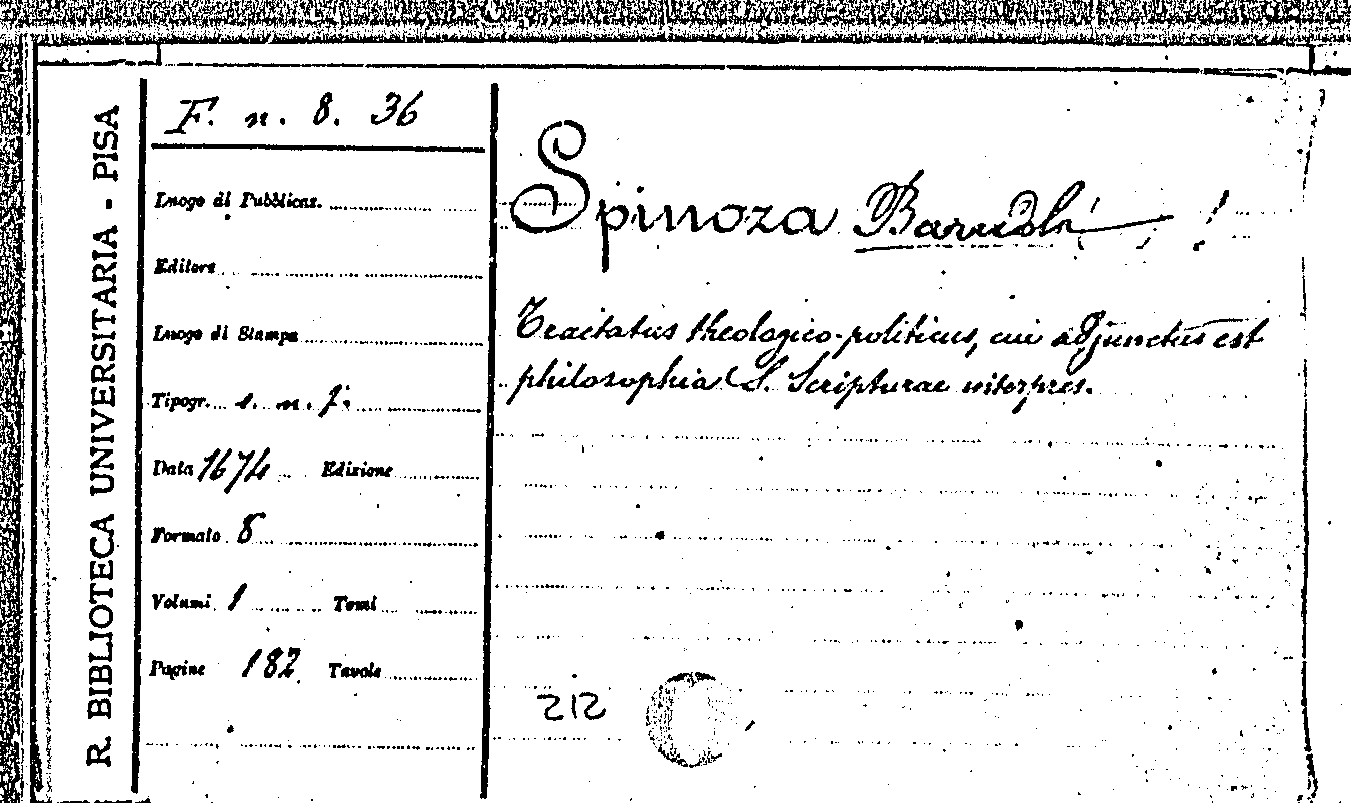 R. BIBLIOTECA UNIVERSITARIA - PISA
F. n. 8. 36
Luogo di Pubblicaz.
Editore
Luogo di Stampa
Tipogr. s. n. t.
Data 1674 Edizione
Formato 8
Volumi 1 Tomi
Pagine 182 Tavole
Spinoza Baruch
Tractatus theologico-politicus, cui adjunctus est
philosophia S. Scripturae interpres.
212